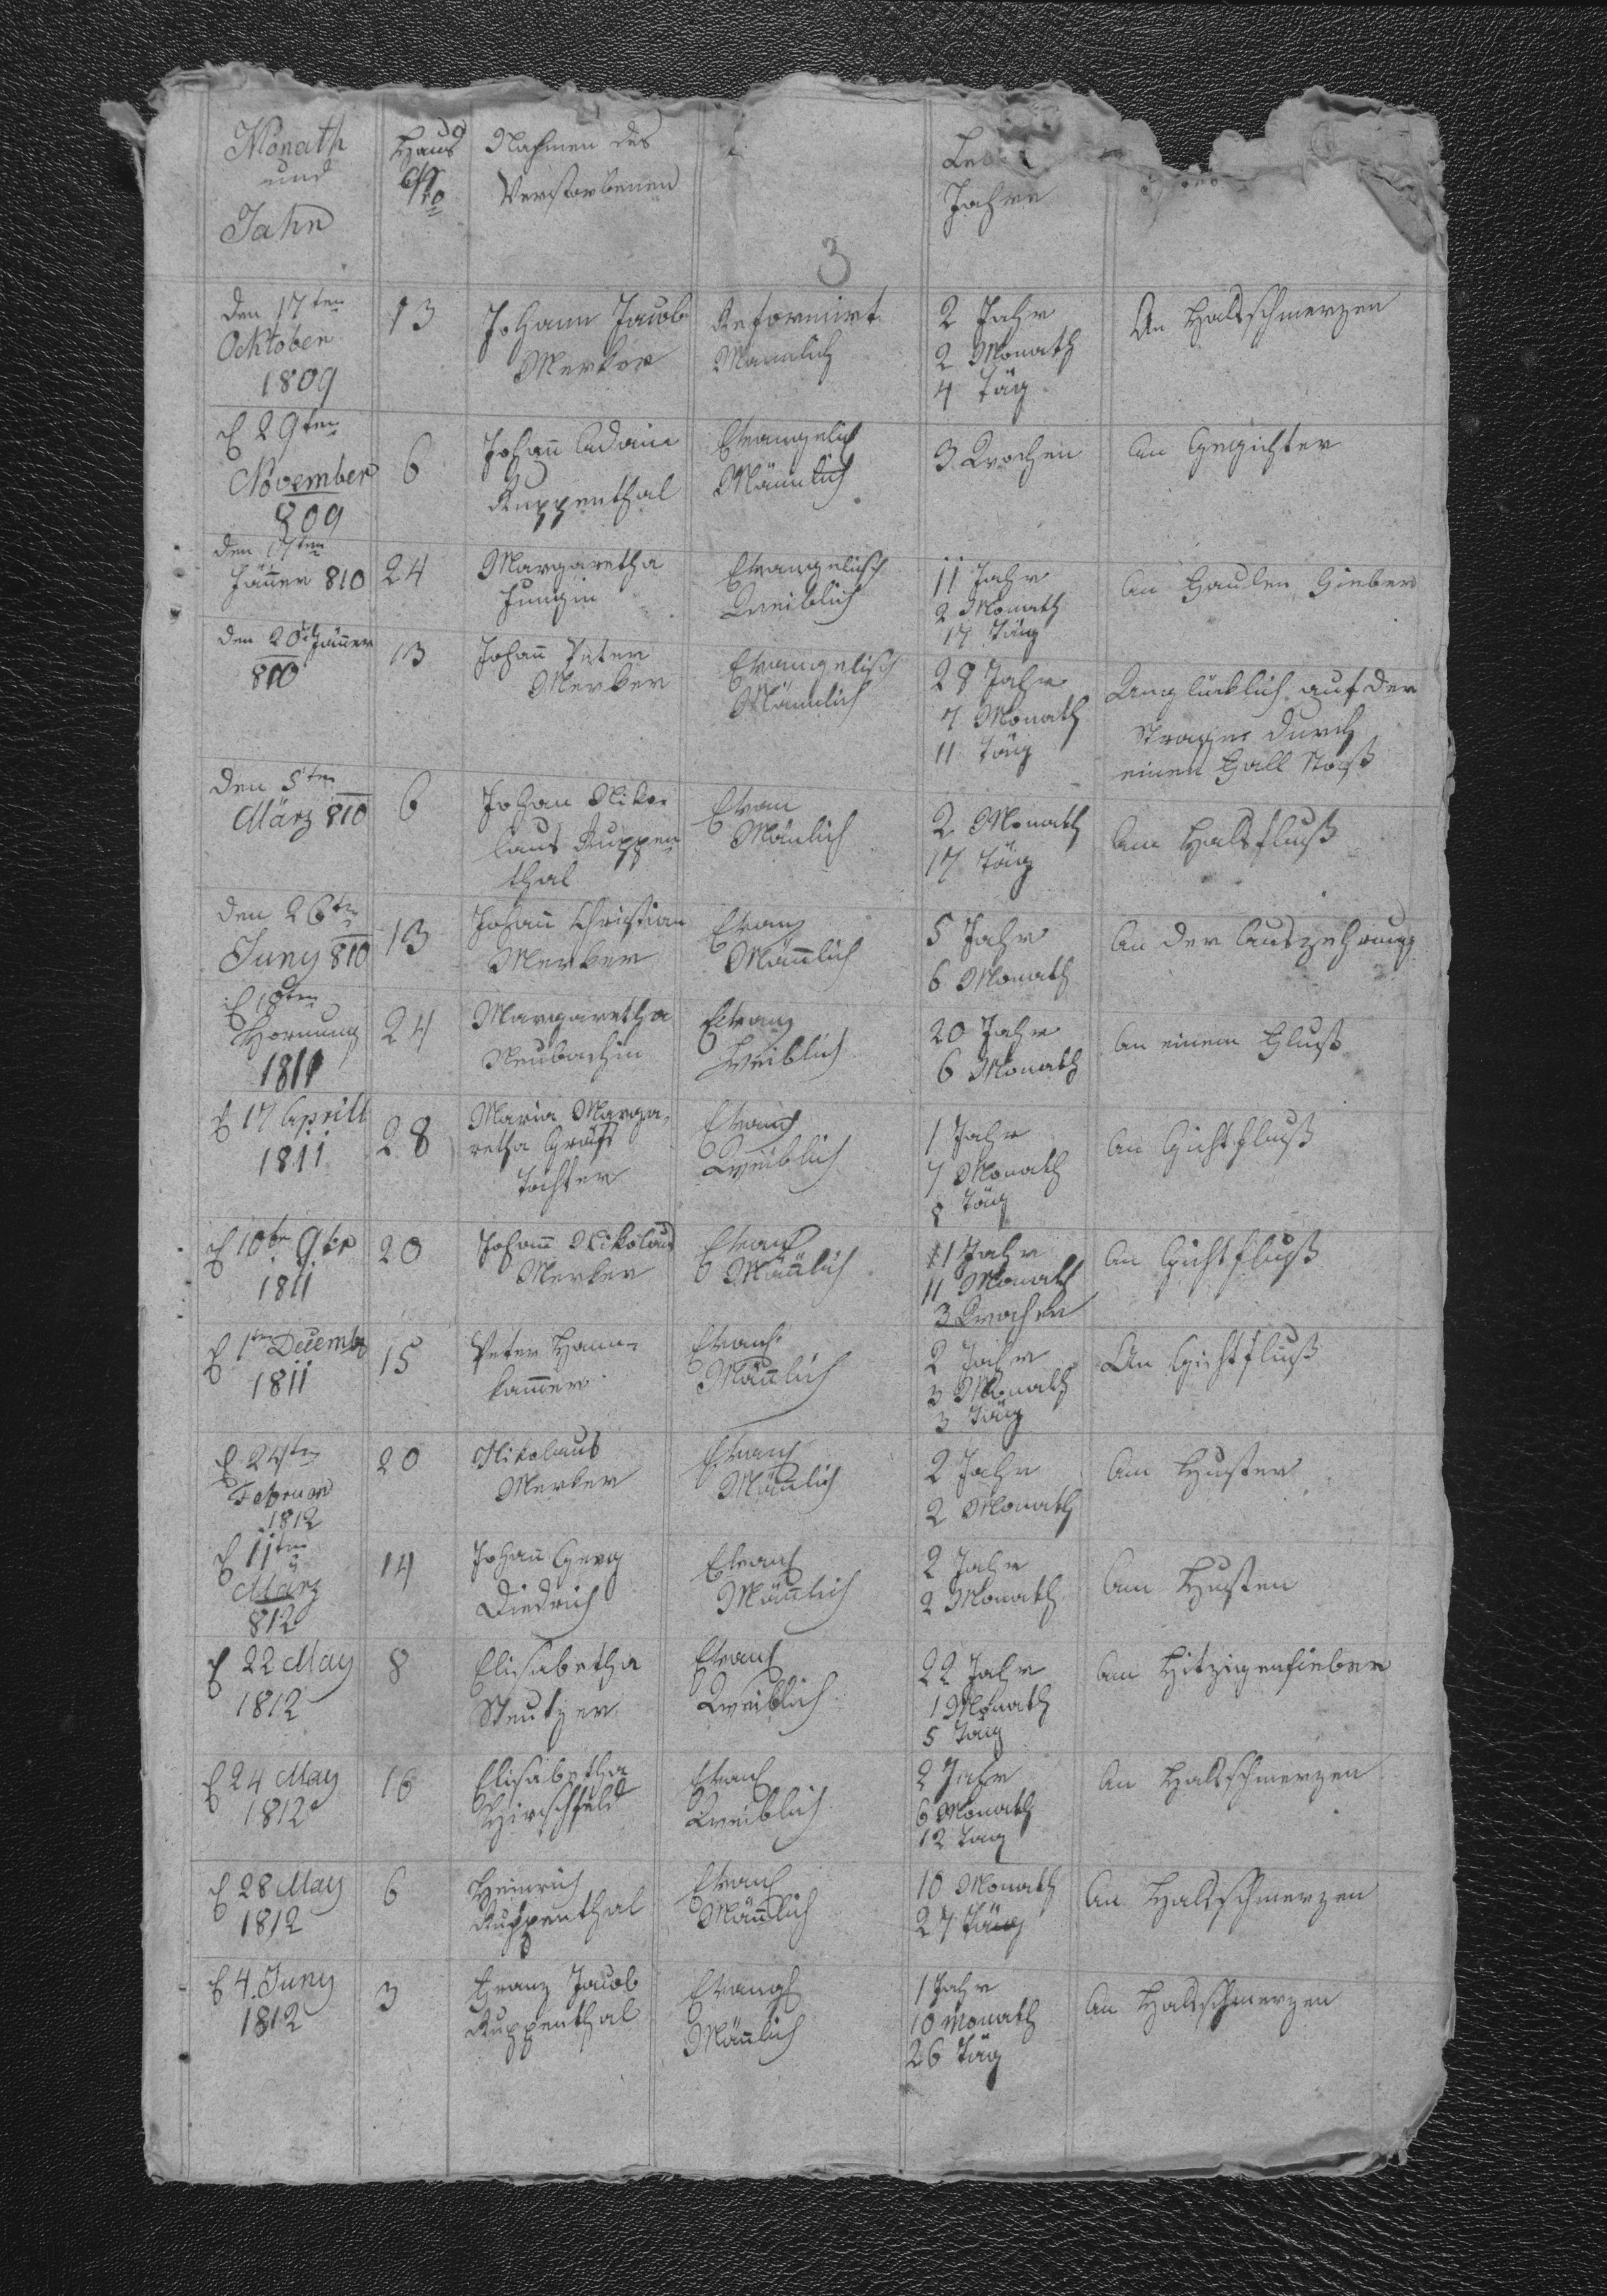 Monath
und
Jahr
Haus
Nro
Nahmen des
Verstorbenen
3
Jahre
den 17ten
Ocktober
1809
13
Johann Jacob
Merker
Reformirt
Mänlich
2 Jahr
2 Monath
4 Täg
An Halsschmerzen
d 29ten
November
809
6
Johañ Adam
Ruppenthal
Evangelisch
Mänlich
3 Wochen
An Gegichter
den 17ten
Jäner 810
24
Margaretha
Jungin
Evangelisch
Weiblich
11 Jahr
2 Monath
17 Täg
An Faulen Fieber
den 20ten Jäner
810
13
Johañ Peter
Merker
Evangelisch
Mänlich
28 Jahr
7 Monath
11 Täg
Unglücklich auf der
durch
einen Fall
den 5ten
März 810
6
Johan Niko-
laus Ruppen
thal
Evan
Mänlich
2 Monath
17 Täg
Am Halsfluß
den 26ten
Juny 810
13
Johañ Christian
Merker
Evang
Mäñlich
5 Jahr
6 Monath
An der Auszehrung
d 18ten
Hornung
1811
24
Margaretha
Neubachin
Evang
Weiblich
20 Jahr
6 Monath
An einem Fluß
d 17 Aprill
1811
28
Maria Marga-
retha Gräfs
Tochter
Evang
Weiblich
1 Jahr
7 Monath
8 Täg
An Gichtfluß
d 10ten 9br
1811
20
Johann Nikolaus
Merker
Evang
Mäñlich
11 Jahr
11 Monath
3 Wochen
An Gichtfluß
d 1ten Decembr
1811
15
Peter Hann-
kammer
Evang
Mäñlich
2 Jahr
3 Monath
3 Täg
An Gichtfluß
d 24ten
Februar
1812
20
Nikolaus
Merker
Evang
Mäñlich
2 Jahr
2 Monath
Am Husten
d 11ten
März
812
14
Johañ Gerg
Diedrich
Evang
Mäñlich
2 Jahr
2 Monath
Am Husten
d 22 May
1812
8
Elisabetha
Steutzer
Evang
Weiblich
22 Jahr
1 Monath
5 Täg
Am Hitzigenfieber
d 24 May
1812
16
Elisabetha
Hirschfeld
Evang
Weiblich
2 Jahr
6 Monath
12 Täg
An Halsschmerzen
d 28 May
1812
6
Heinrich
Ruppenthal
Evang
Mäñlich
10 Monath
27 Täg
An Halsschmerzen
d 4. Juny
1812
3
Franz Jacob
Ruppenthal
Evang
Mäñlich
1 Jahr
10 Monath
26 Täg
An Halsschmerzen